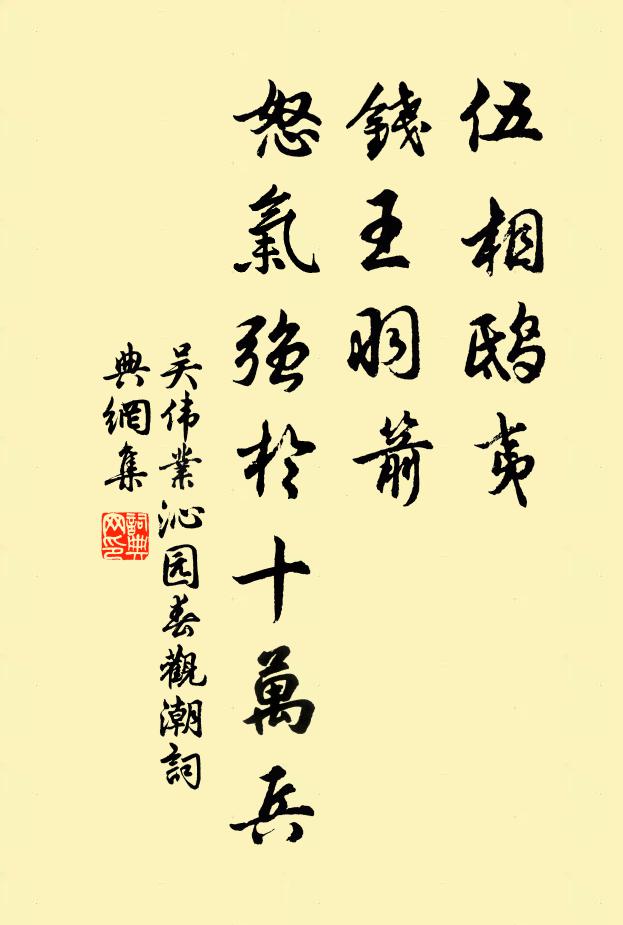 伍相鴟夷
錢王羽箭
怒氣強於十萬兵
吴伟業沁园春觀潮詞
典網集
詞典网印